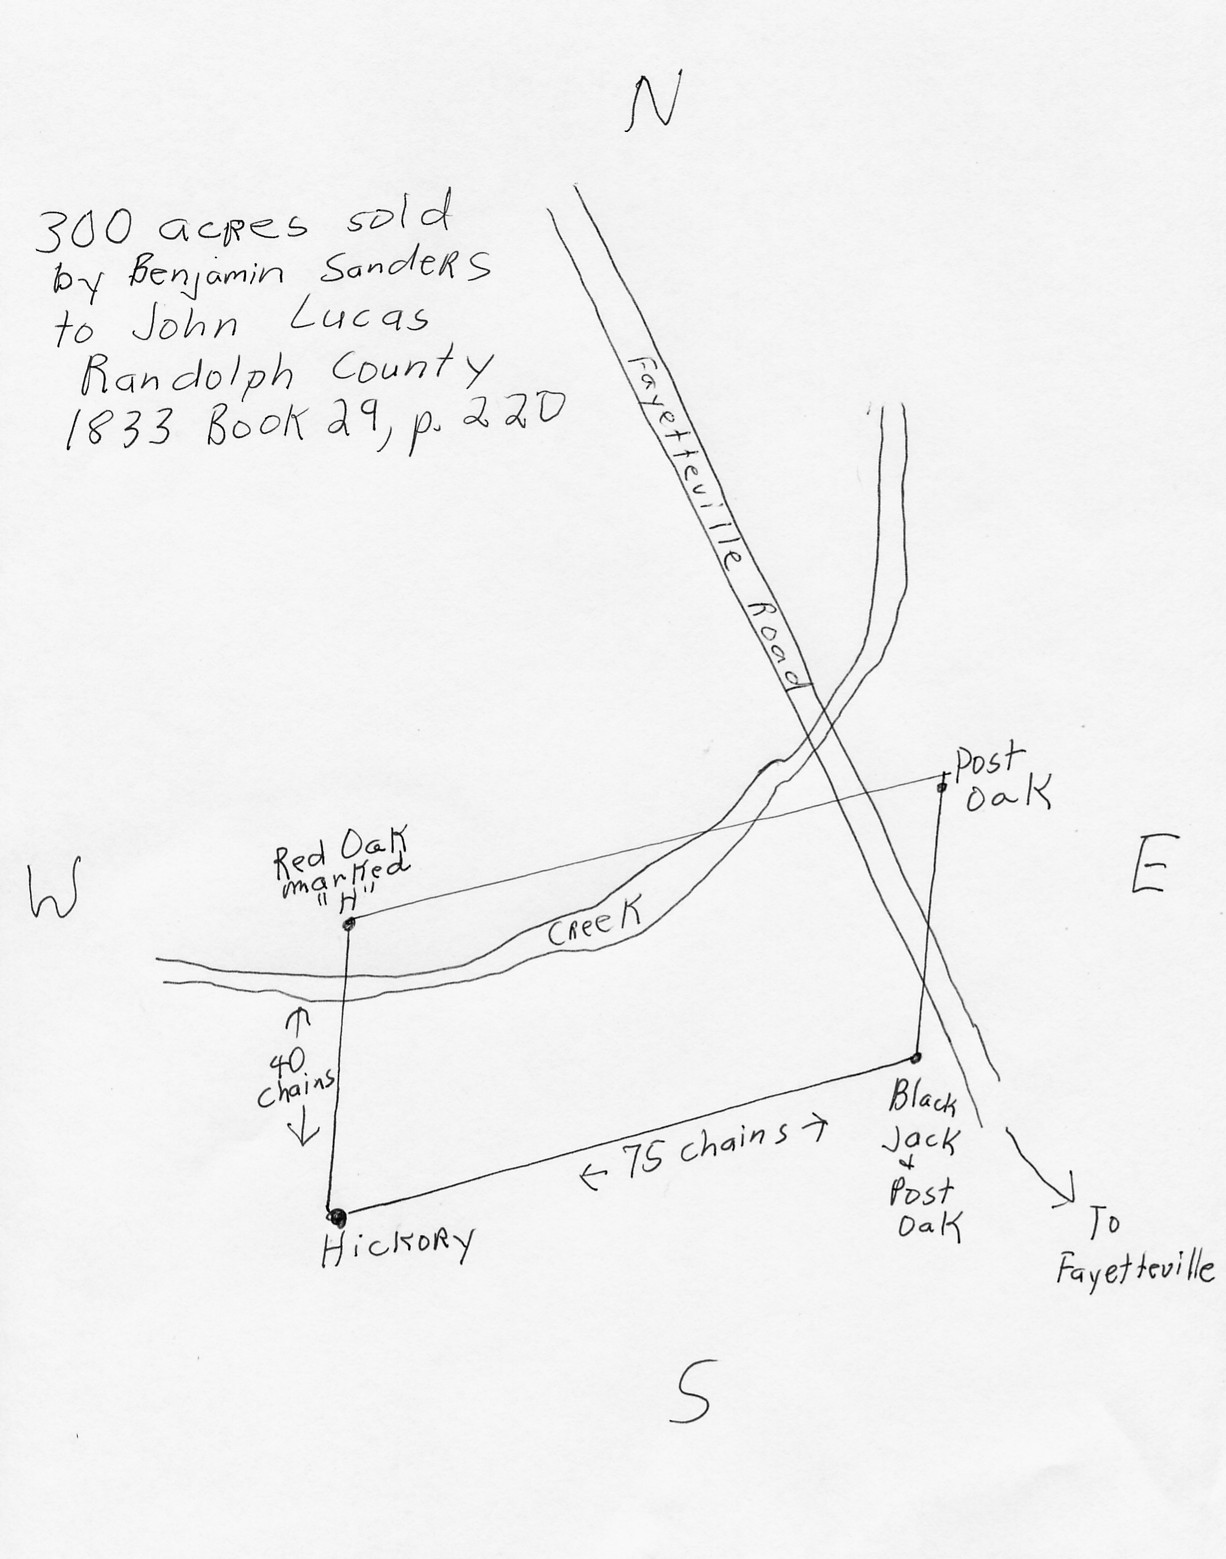 N
300 acres sold
by Benjamin Sanders
to John Lucas
Randolph County
1833 Book 29, p. 220
Fayetteville Road
Post
Oak
Red Oak
marked
"H"
W
E
Creek
40
chains
← 75 chains →
Black
Jack
&
Post
Oak
Hickory
To
Fayetteville
S